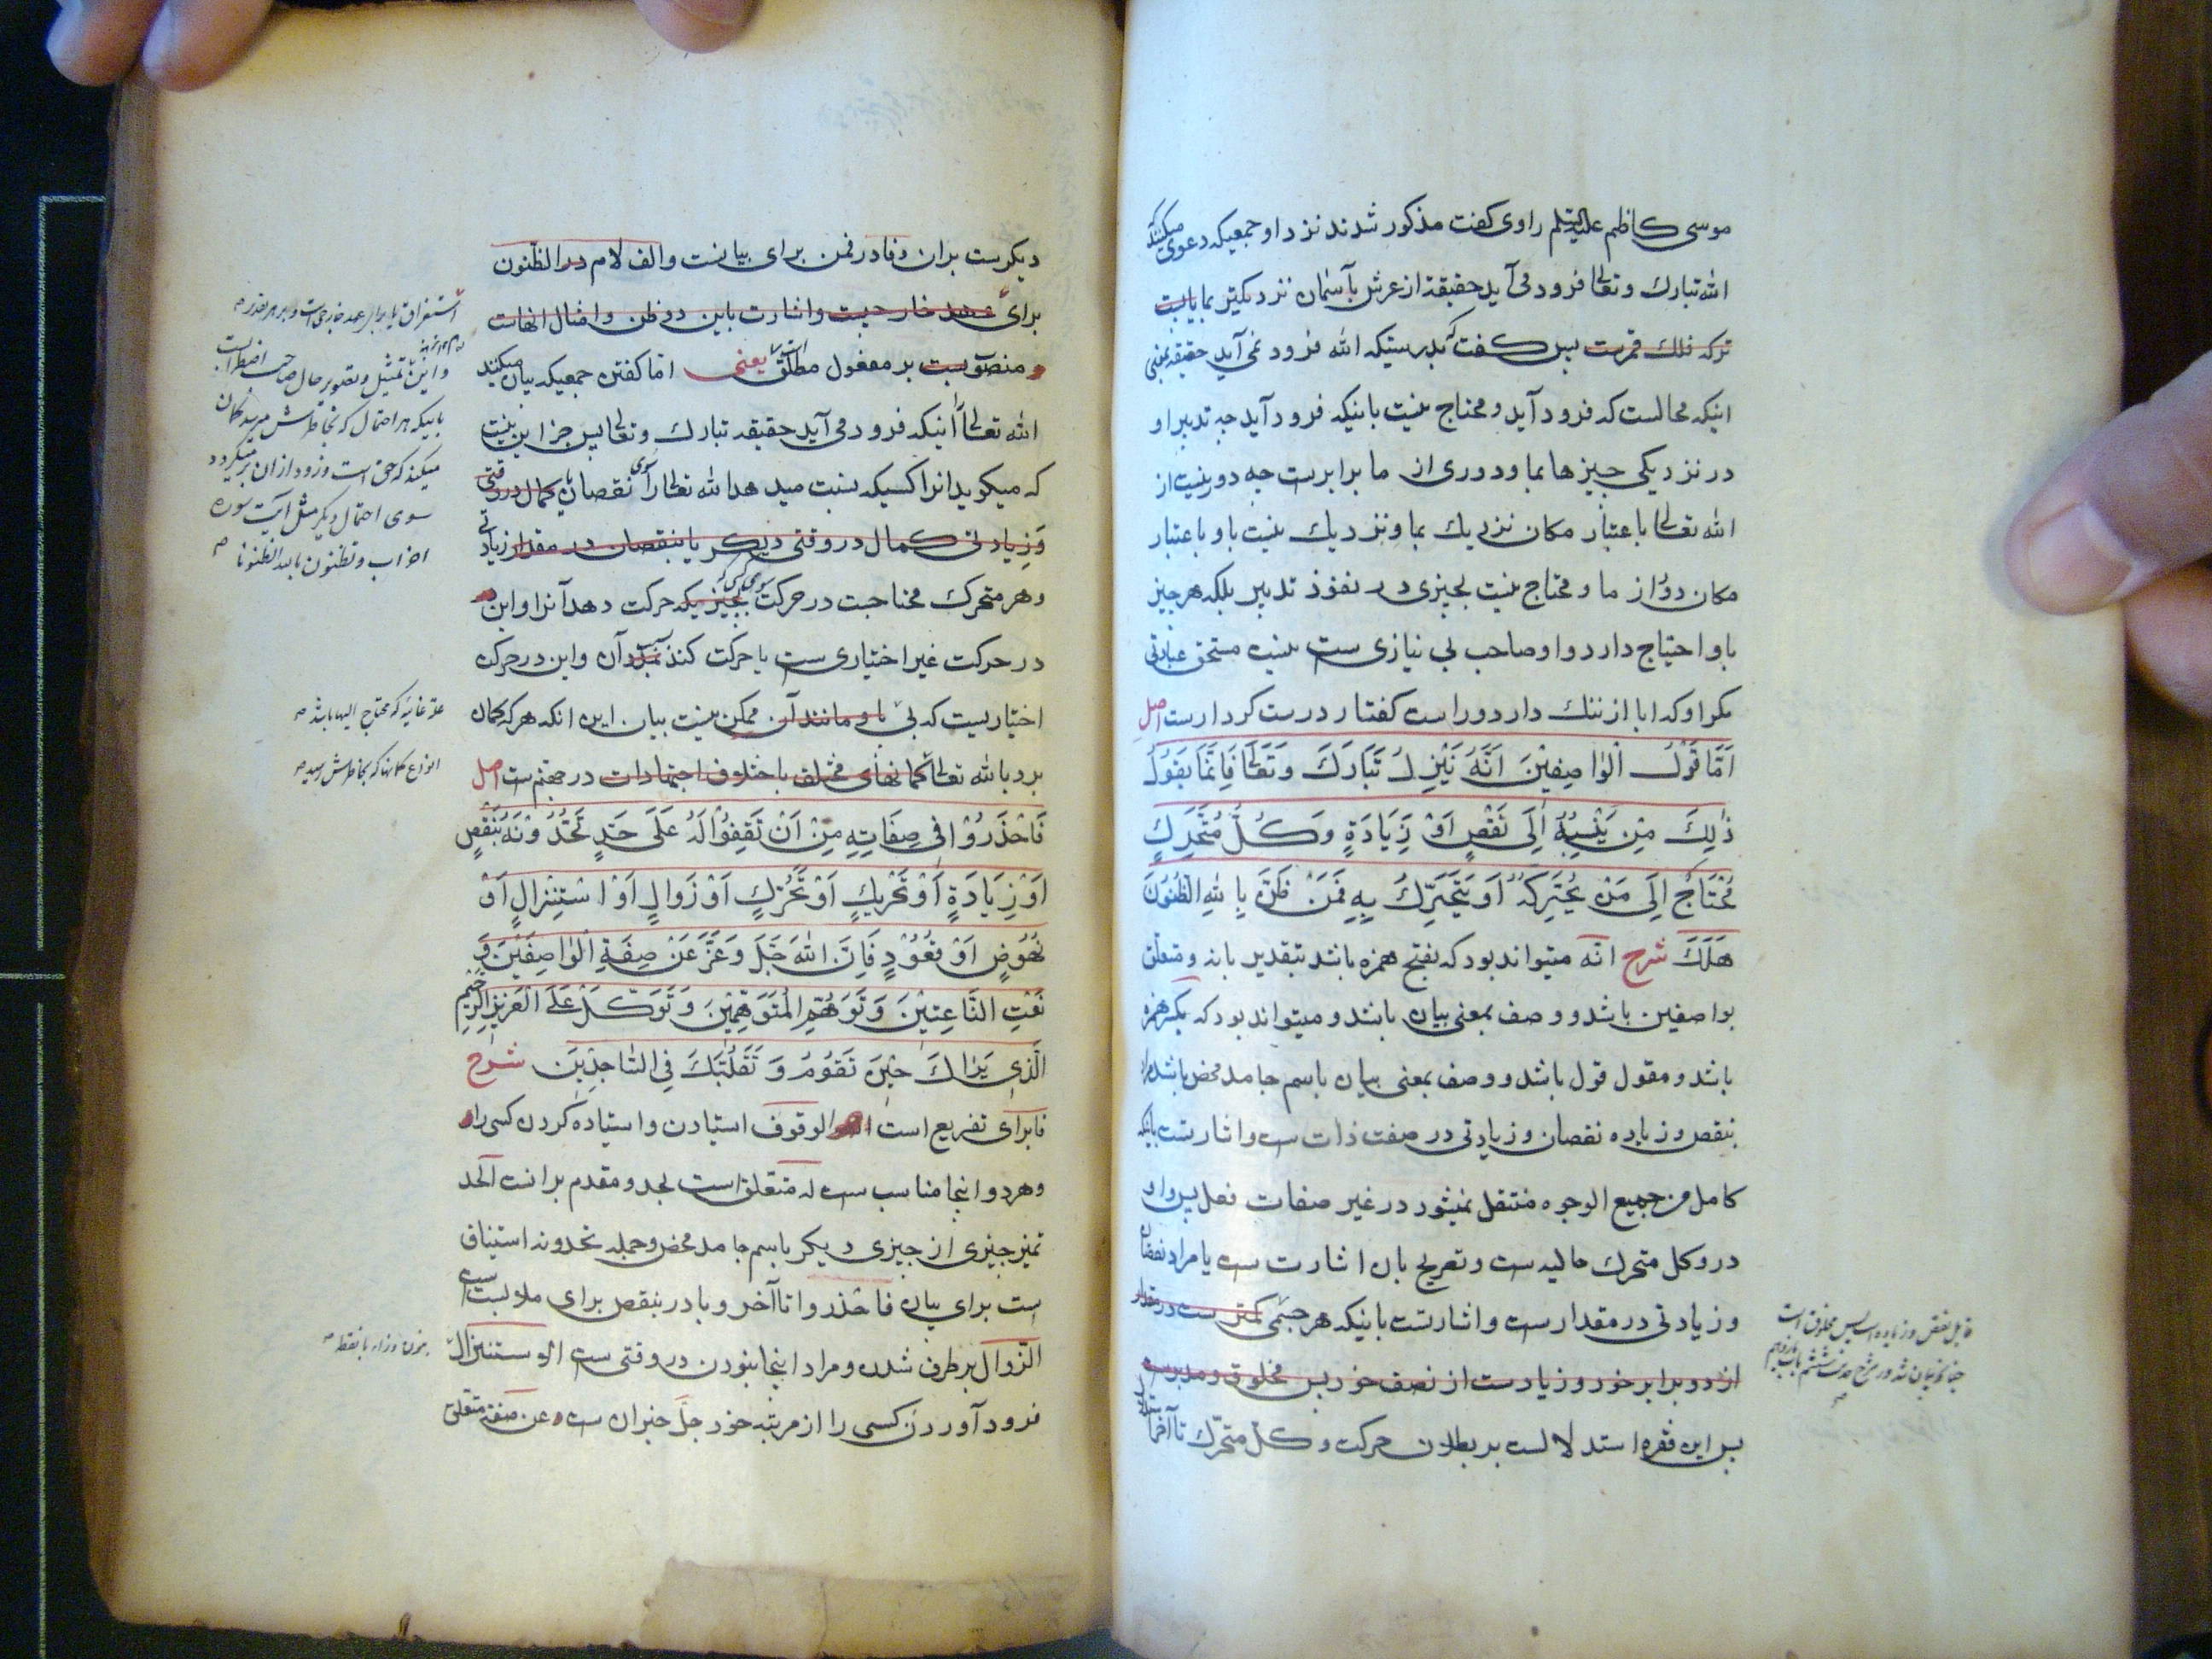 موسی كاظم علیه السلم راوی كفت مذكور شدند نزد او جمعیكه دعوی میكنند كه
الله تبارك وتعالی فرود می آید حقیقة از عرش بآسمان نزدیكتر بما یا بست
تر كه فلك قمرست پس كفت كه بدرستیكه الله فرود نمی آید حقیقة بمعنی
اینكه محالست كه فرود آید و محتاج نیست باینكه فرود آید چه تدبیر او
در نزدیكی چیزها بما و دوری از ما برابرست چه دور نیست از
الله تعالی باعتبار مكان نزدیك بما و نزدیك نیست باو باعتبار
مكان دور از ما و محتاج نیست بچیزی در نفوذ تدبیر بلكه هر چیز
باو احتیاج دارد و او صاحب بی نیازی ست نیست مستحق عبادتی
مكر او كه ابا از ننك دارد و راست كفتار درست كردارست اصل
اَمَّا قَوْلُ الْوَاصِفِيْنَ اَنَّهُ يَنْزِلُ تَبَارَكَ وَتَعَالَى فَاِنَّمَا يَقُوْلُ
ذٰلِكَ مَنْ يَنْسِبُهُ اِلَى نَقْصٍ اَوْ زِيَادَةٍ وَكُلُّ مُتَحَرِّكٍ
مُحْتَاجٌ اِلَى مَنْ يُحَرِّكُهُ اَوْ يَتَحَرَّكُ بِهِ فَمَنْ ظَنَّ بِاللهِ الظُّنُوْنَ
هَلَكَ شرح انّه میتواند بود كه بفتح همزه باشد بتقدیر بانه و متعلق
بواصفین باشد و وصف بمعنی بیان باشد و میتواند بود كه بكسر همزه
باشد و مقول قول باشد و وصف بمعنی بیان باسم جامد محض باشد مراد
بنقص و زیاده نقصان و زیادتی در صفت ذات ست و اشارتست باینكه
كامل من جمیع الوجوه منتقل نمیشود در غیر صفات فعل پس واو
در وكل متحرك حالیه ست و تصریح بان اشارت ست یا مراد نقصان
و زیادتی در مقدار ست و اشارتست باینكه هر جسمی كمتر ست در مقدار
از دو برابر خود و زیادست از نصف خود پس مخلوق و مدبرست
پس این فقره استدلالست بر بطلان حركت و كل متحرّك تا آخر
قابل نقص و زیاده است پس مخلوق است
چنانچه بیان شد در شرح حدیث ششم باب
دیكرست بران و فا در فمن برای بیانست والف لام در الظنون
برای عهد خارجیست و اشارت باین دو ظن و امثال انهاست
و منصوبست بر مفعول مطلق یعنی امّا كفتن جمعیكه بیان میكنند
الله تعالی را اینكه فرود می آید حقیقة تبارك وتعالی پس جز این نیست
كه میكوید انرا كسیكه نسبت میدهد الله تعالی را سوی نقصان یا كمال در وقتی
وَ زیادتی كمال در وقتی دیكر یا بنقصان در مقدار زیادتی
و هر متحرك محتاجست در حركت بچیزیكه حركت دهد آنرا و این
در حركت غیر اختیاری ست یا حركت كند بمدد آن و این در حركت
اختیاریست كه بی پا و مانند آن ممكن نیست بیان این انكه هر كه كمان
برد بالله تعالی كمانهای مختلف باختلاف اجتهادات در جهنم ست اصل
فَاحْذَرُوْا فِي صِفَاتِهِ مِنْ اَنْ تَقِفُوْا لَهُ عَلَى حَدٍّ تَحُدُّوْنَهُ بِنَقْصٍ
اَوْ زِيَادَةٍ اَوْ تَحْرِيكٍ اَوْ تَحَرُّكٍ اَوْ زَوَالٍ اَوْ اسْتِنْزَالٍ اَوْ
نُهُوْضٍ اَوْ قُعُوْدٍ فَاِنَّ اللهَ جَلَّ وَعَزَّ عَنْ صِفَةِ الْوَاصِفِيْنَ وَ
نَعْتِ النَّاعِتِيْنَ وَتَوَهُّمِ الْمُتَوَهِّمِيْنَ وَتَوَكَّلْ عَلَى الْعَزِيْزِ الرَّحِيْمِ
الَّذِي يَرَاكَ حِيْنَ تَقُوْمُ وَتَقَلُّبَكَ فِي السَّاجِدِيْنَ شرح
فا برای تفریع است الوقوف استادن و استاده كردن كسی را
و هر دو اینجا مناسب ست له متعلق است بحد و مقدم بران ست الحد
تمیز چیزی از چیزی دیكر باسم جامد محض و جمله تحدونه استیناف
ست برای بیان فاحذروا تا آخر و با در بنقص برای ملابست ست
الزوال بر طرف شدن و مراد اینجا نبودن در وقتی ست الاستنزال
فرود آوردن كسی را از مرتبه خود جلّ خبر ان ست و عن صفة متعلق
استغراق یا برای عهد خارجی است و بر هر تقدیر
و این تمثیل و تصویر حال صاحب اضطراب است
باینكه هر احتمال كه بخاطرش میرسد كمان
میكند كه حق است و زود از ان بر میكردد
سوی احتمال دیكر مثل آیت سوره
احزاب وتظنون بالله الظنونا
علة غائیه كه محتاج الیها باشد
انواع كمانها كه بخاطرش رسید
بنون و زاء با نقطه